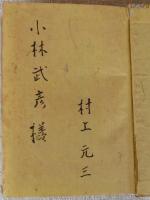 小林武彦様
村上元三